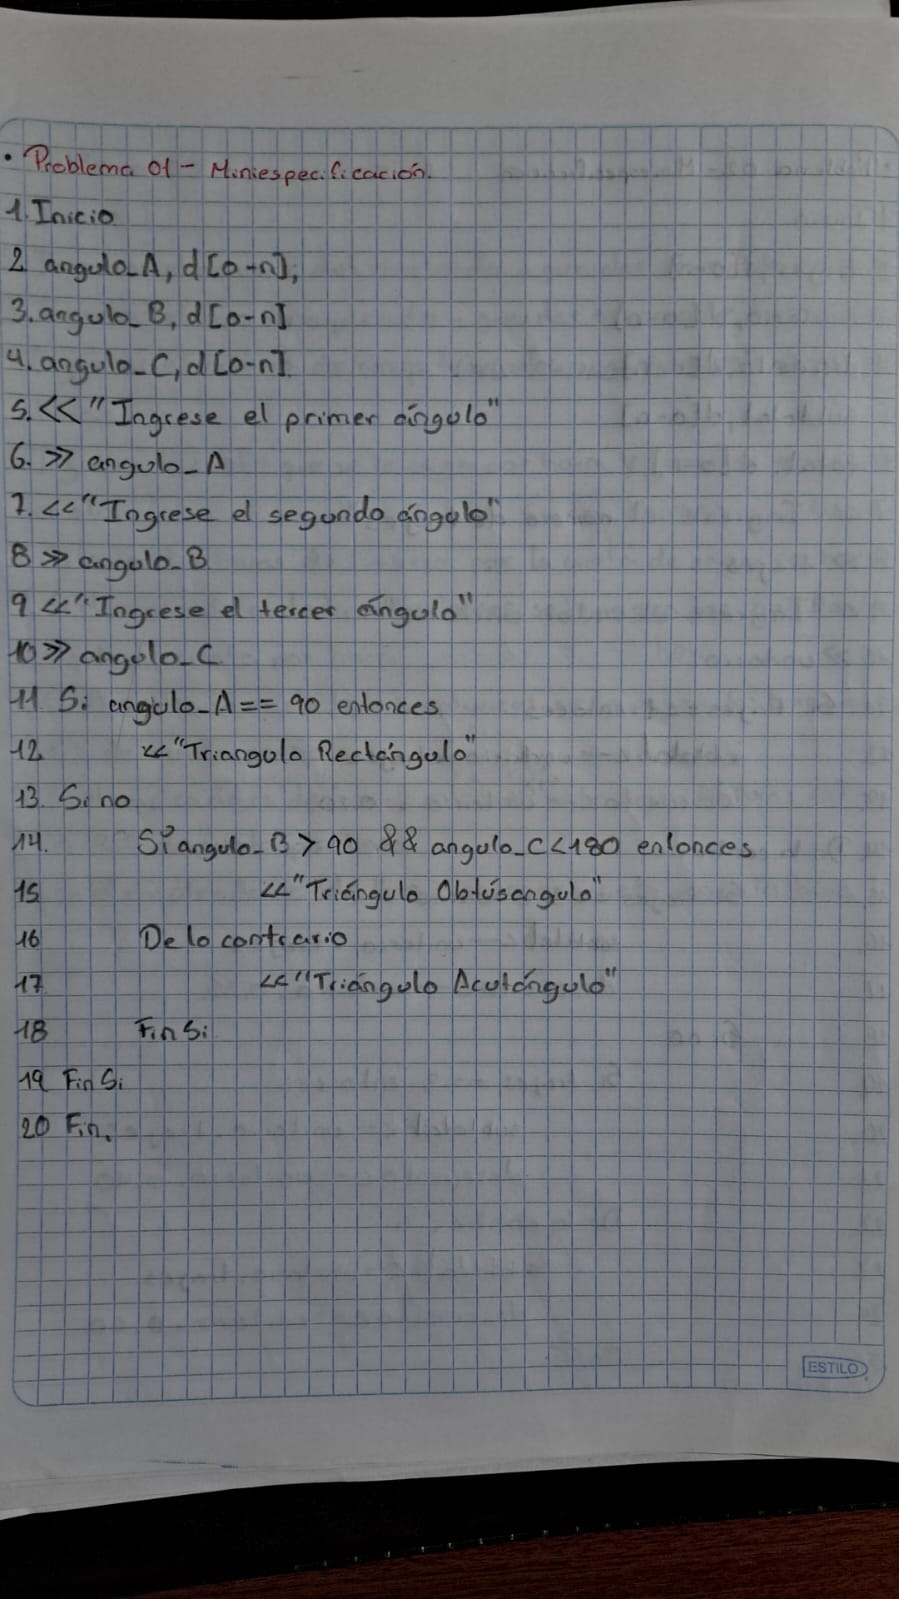 • Problema 01 - Miniespecificación.
1. Inicio
2 angulo_A, d[0-n],
3. angulo_B, d[0-n]
4. angulo_C, d[0-n]
5. << "Ingrese el primer ángulo"
6. >> angulo_A
7. << "Ingrese el segundo ángulo"
8 >> angulo_B
9 << "Ingrese el tercer ángulo"
10 >> angulo_C
11 Si angulo_A == 90 entonces
12 << "Triangulo Rectángulo"
13. Si no
14. Si angulo_B > 90 && angulo_C < 180 entonces
15 << "Triángulo Obtúsangulo"
16 De lo contrario
17 << "Triángulo Acutángulo"
18 Fin Si
19 Fin Si
20 Fin.
ESTILO